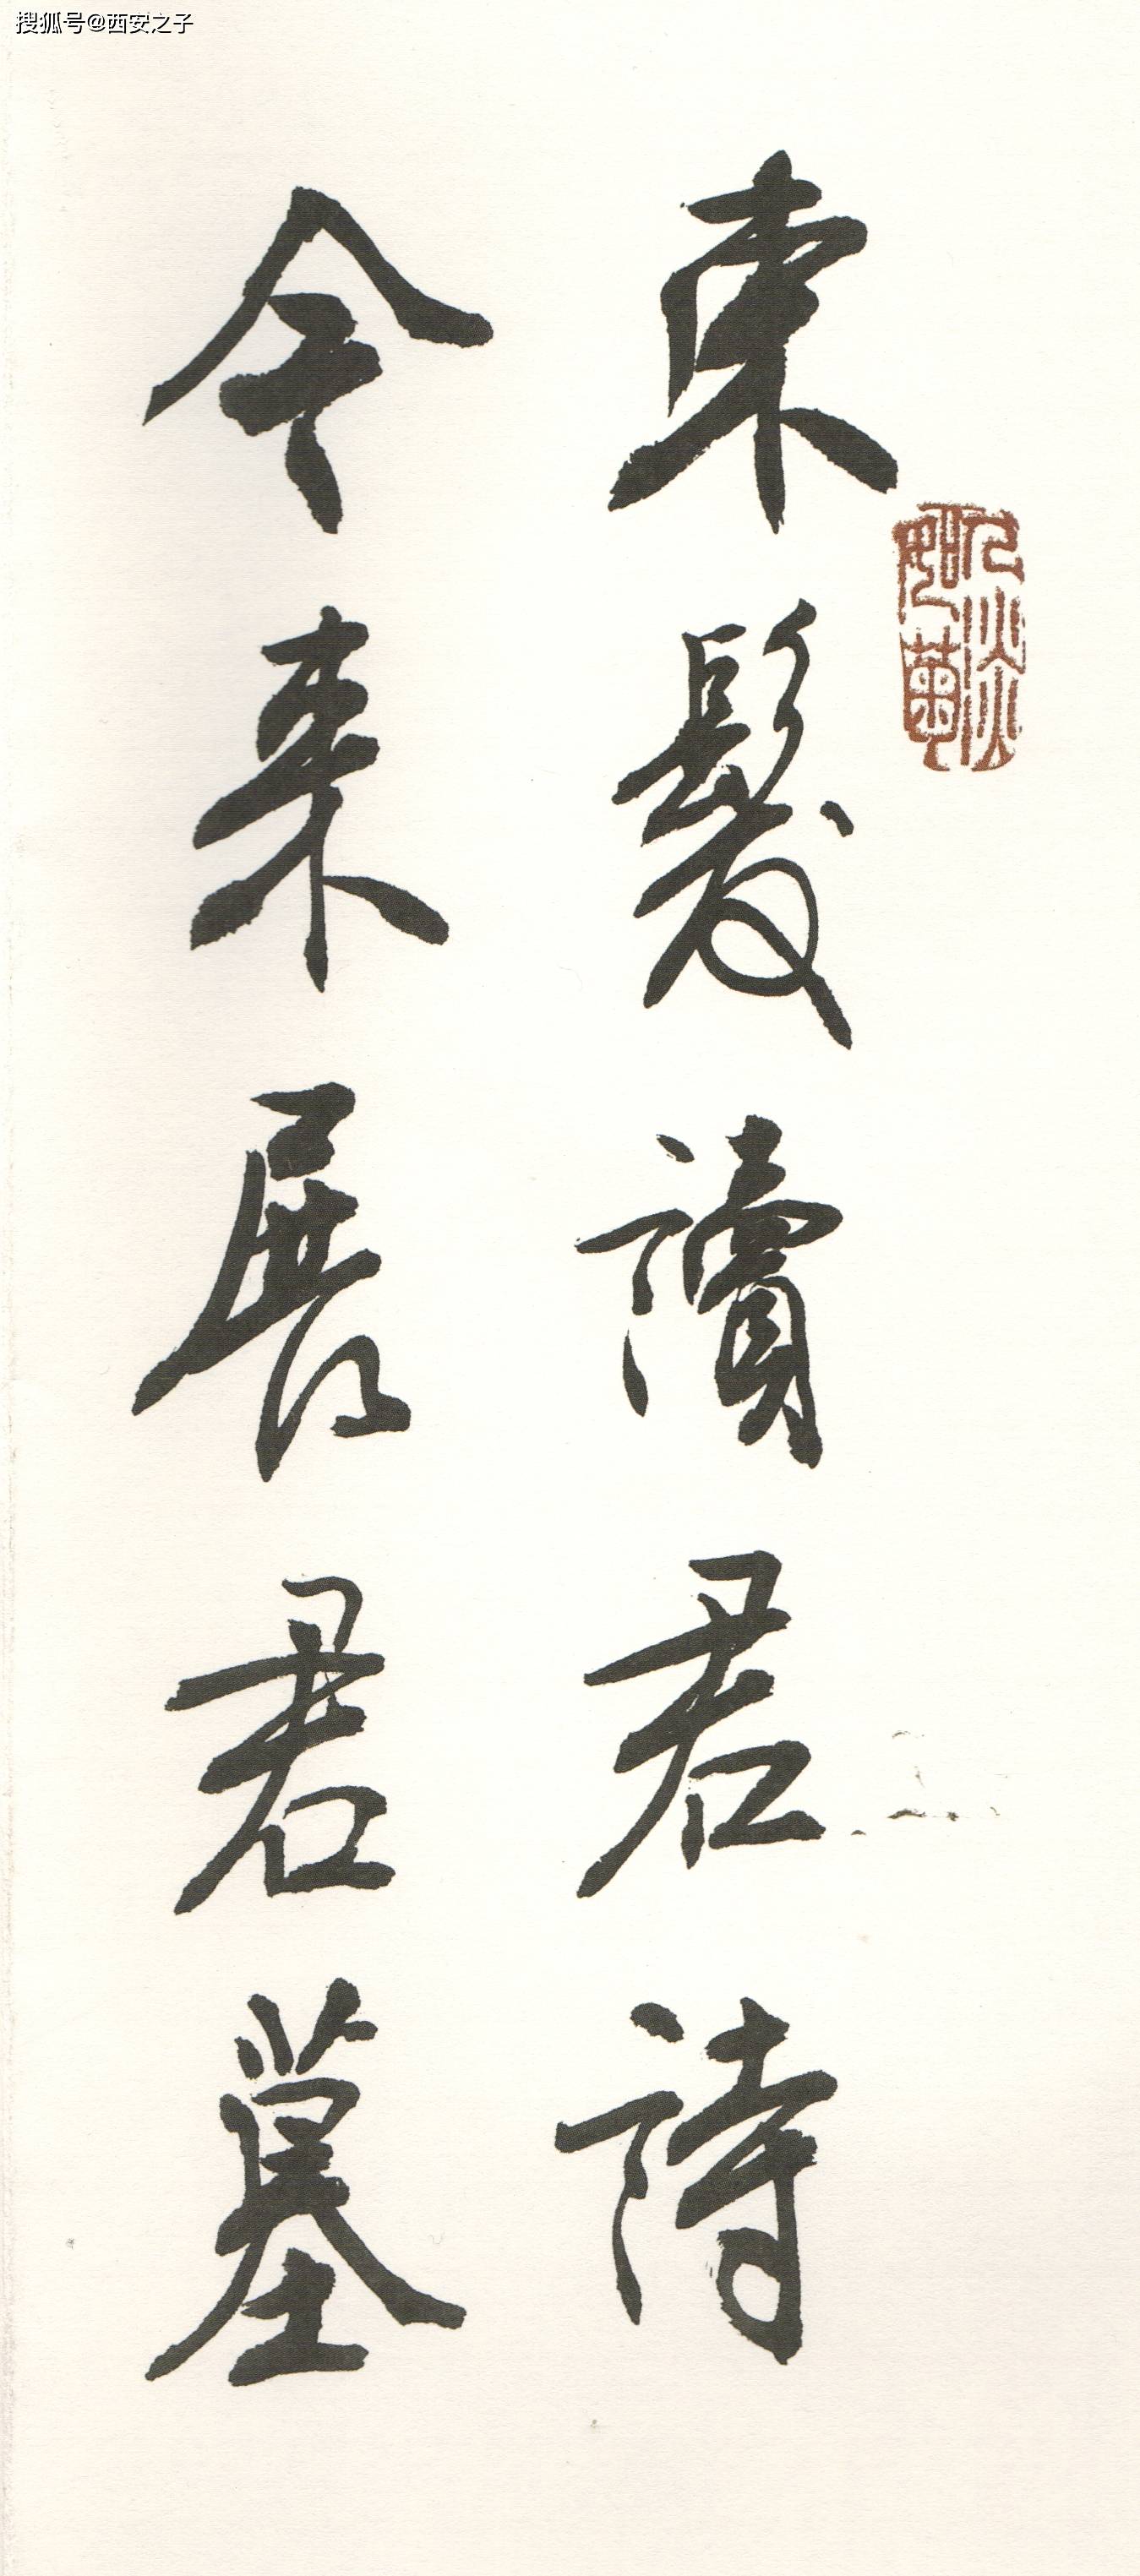 搜狐号@西安之子
束髮讀君詩
今来展君墓